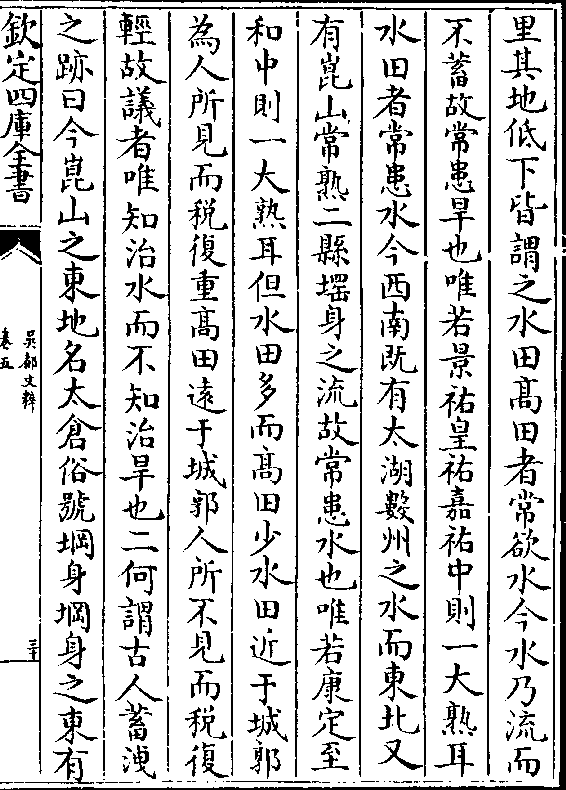 里其地低下皆謂之水田髙田者常欲水今水乃流而
不蓄故常患旱也唯若景祐皇祐嘉祐中則一大熟耳
水田者常患水今西南既有太湖數州之水而東北又
有崑山常熟二縣堽身之流故常患水也唯若康定至
和中則一大熟耳但水田多而髙田少水田近于城郭
為人所見而税復重髙田遠于城郭人所不見而税復
輕故議者唯知治水而不知治旱也二何謂古人蓄洩
之跡曰今崑山之東地名太倉俗號堈身堈身之東有
欽定四庫全書
吳都文粹
卷五
三十